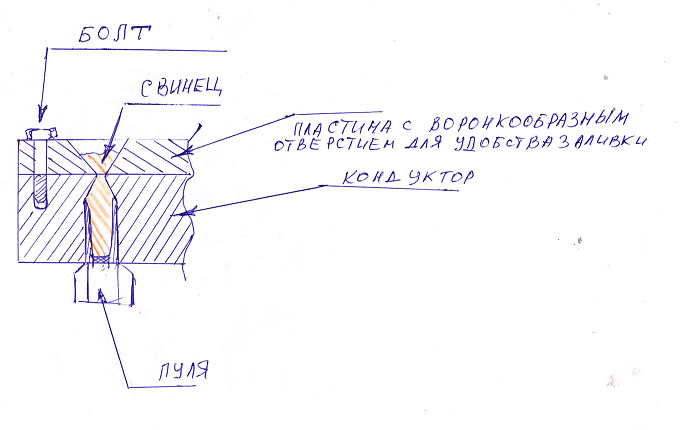 БОЛТ
СВИНЕЦ
ПЛАСТИНА С ВОРОНКООБРАЗНЫМ
ОТВЕРСТИЕМ ДЛЯ УДОБСТВА ЗАЛИВКИ
КОНДУКТОР
ПУЛЯ